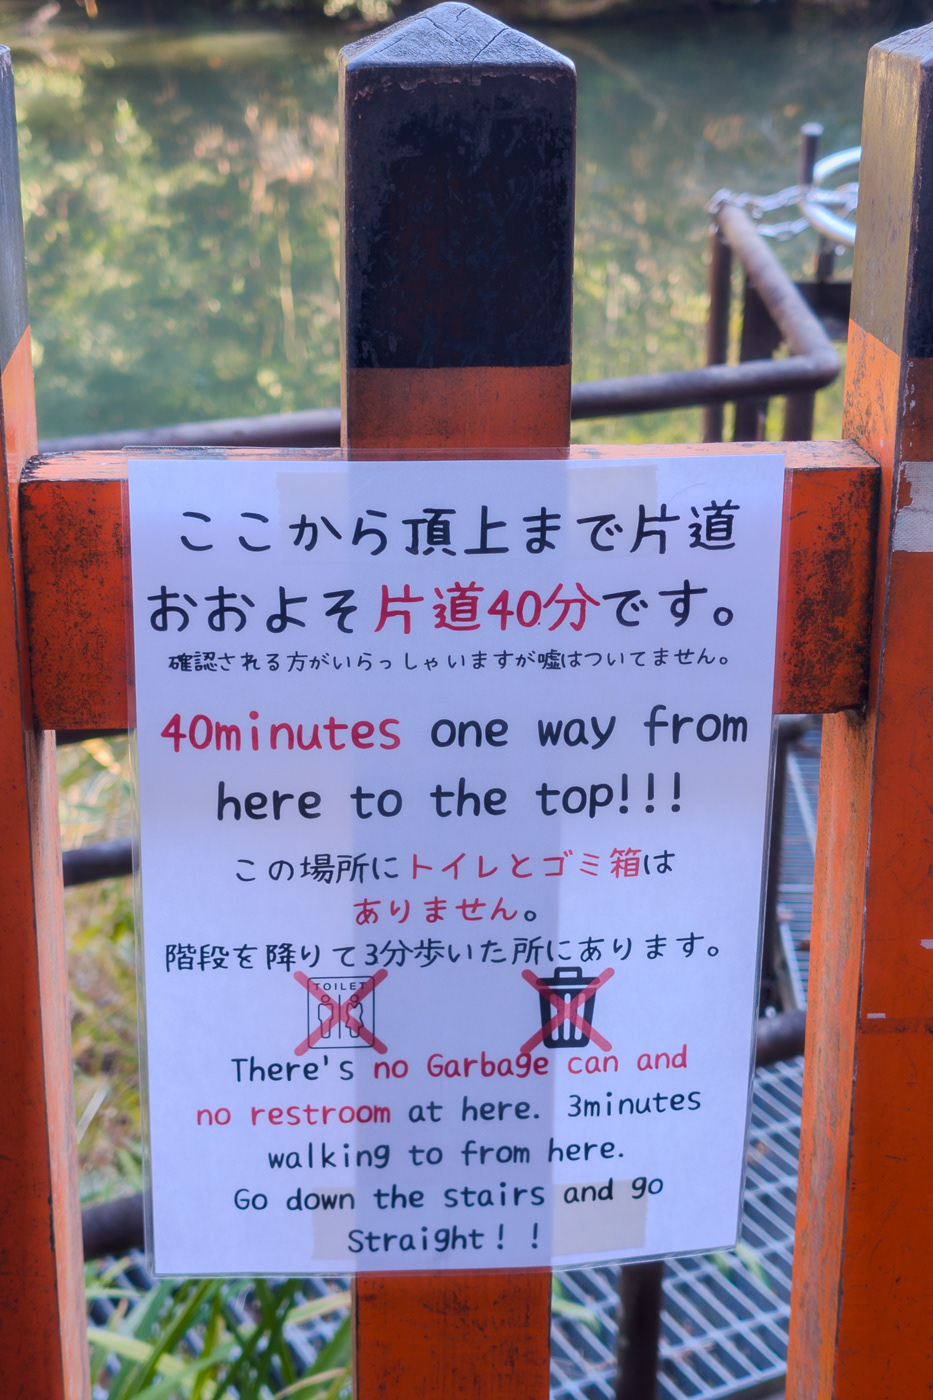 ここから頂上まで片道
おおよそ片道40分です。
確認される方がいらっしゃいますが嘘はついてません。
40minutes one way from
here to the top!!!
この場所にトイレとゴミ箱は
ありません。
階段を降りて3分歩いた所にあります。
TOILET
There's no Garbage can and
no restroom at here. 3minutes
walking to from here.
Go down the stairs and go
Straight！！